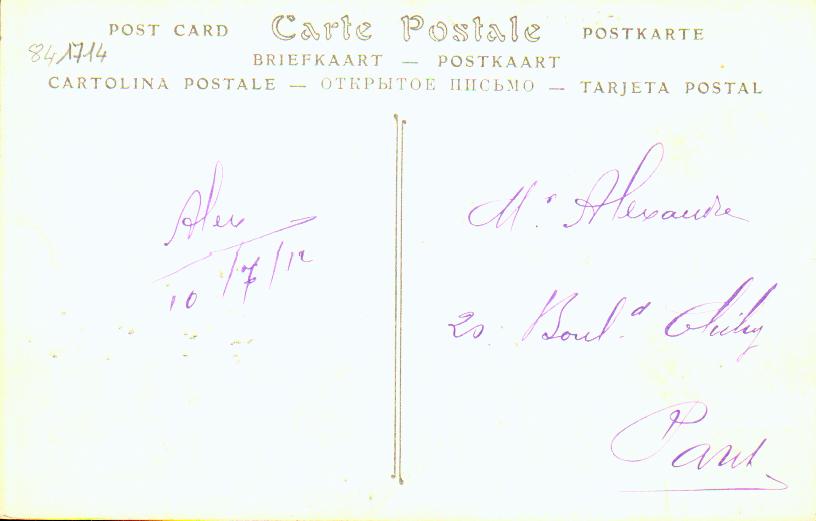 POST CARD Carte Postale POSTKARTE
841714
BRIEFKAART — POSTKAART
CARTOLINA POSTALE — ОТКРЫТОЕ ПИСЬМО — TARJETA POSTAL
Alex
10/7/12
Mr. Alexandre
20 Boul.d Clichy
Paris